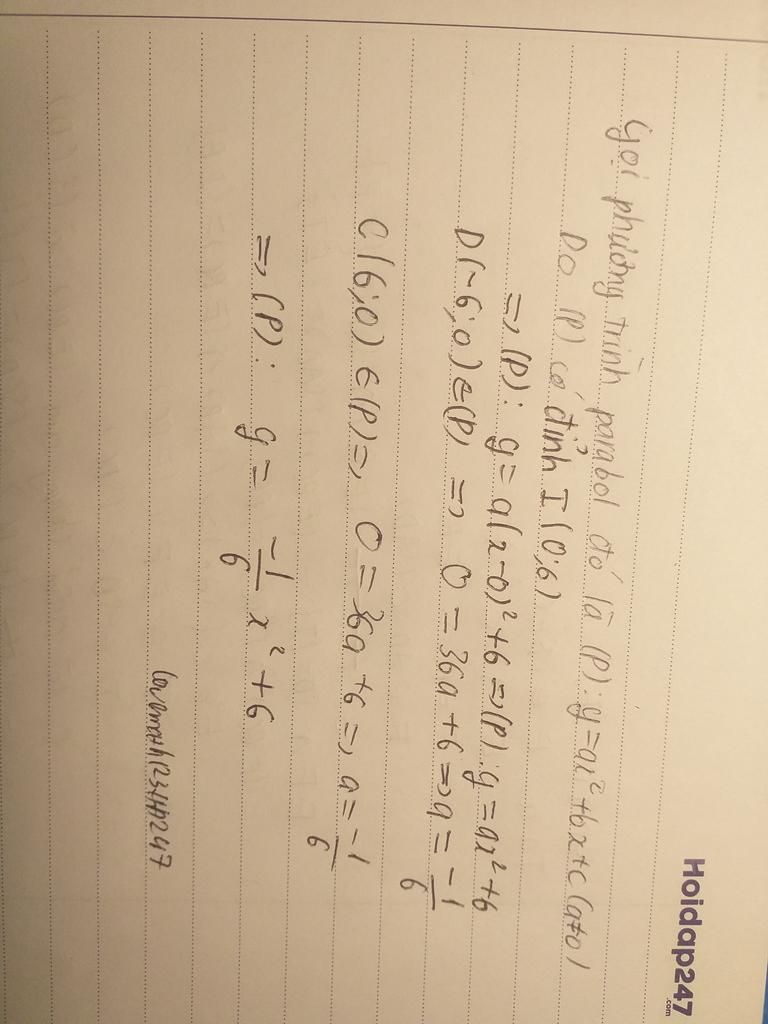 Hoidap247
.com
Gọi phương trình parabol đó là (P): y=ax²+bx+c (a≠0)
Do (P) có đỉnh I(0;6)
=> (P): y=a(x-0)²+6 => (P): y=ax²+6
D(-6;0)∈(P) => 0=36a+6 => a=-1/6
C(6;0)∈(P) => 0=36a+6 => a=-1/6
=> (P): y= -1/6 x²+6